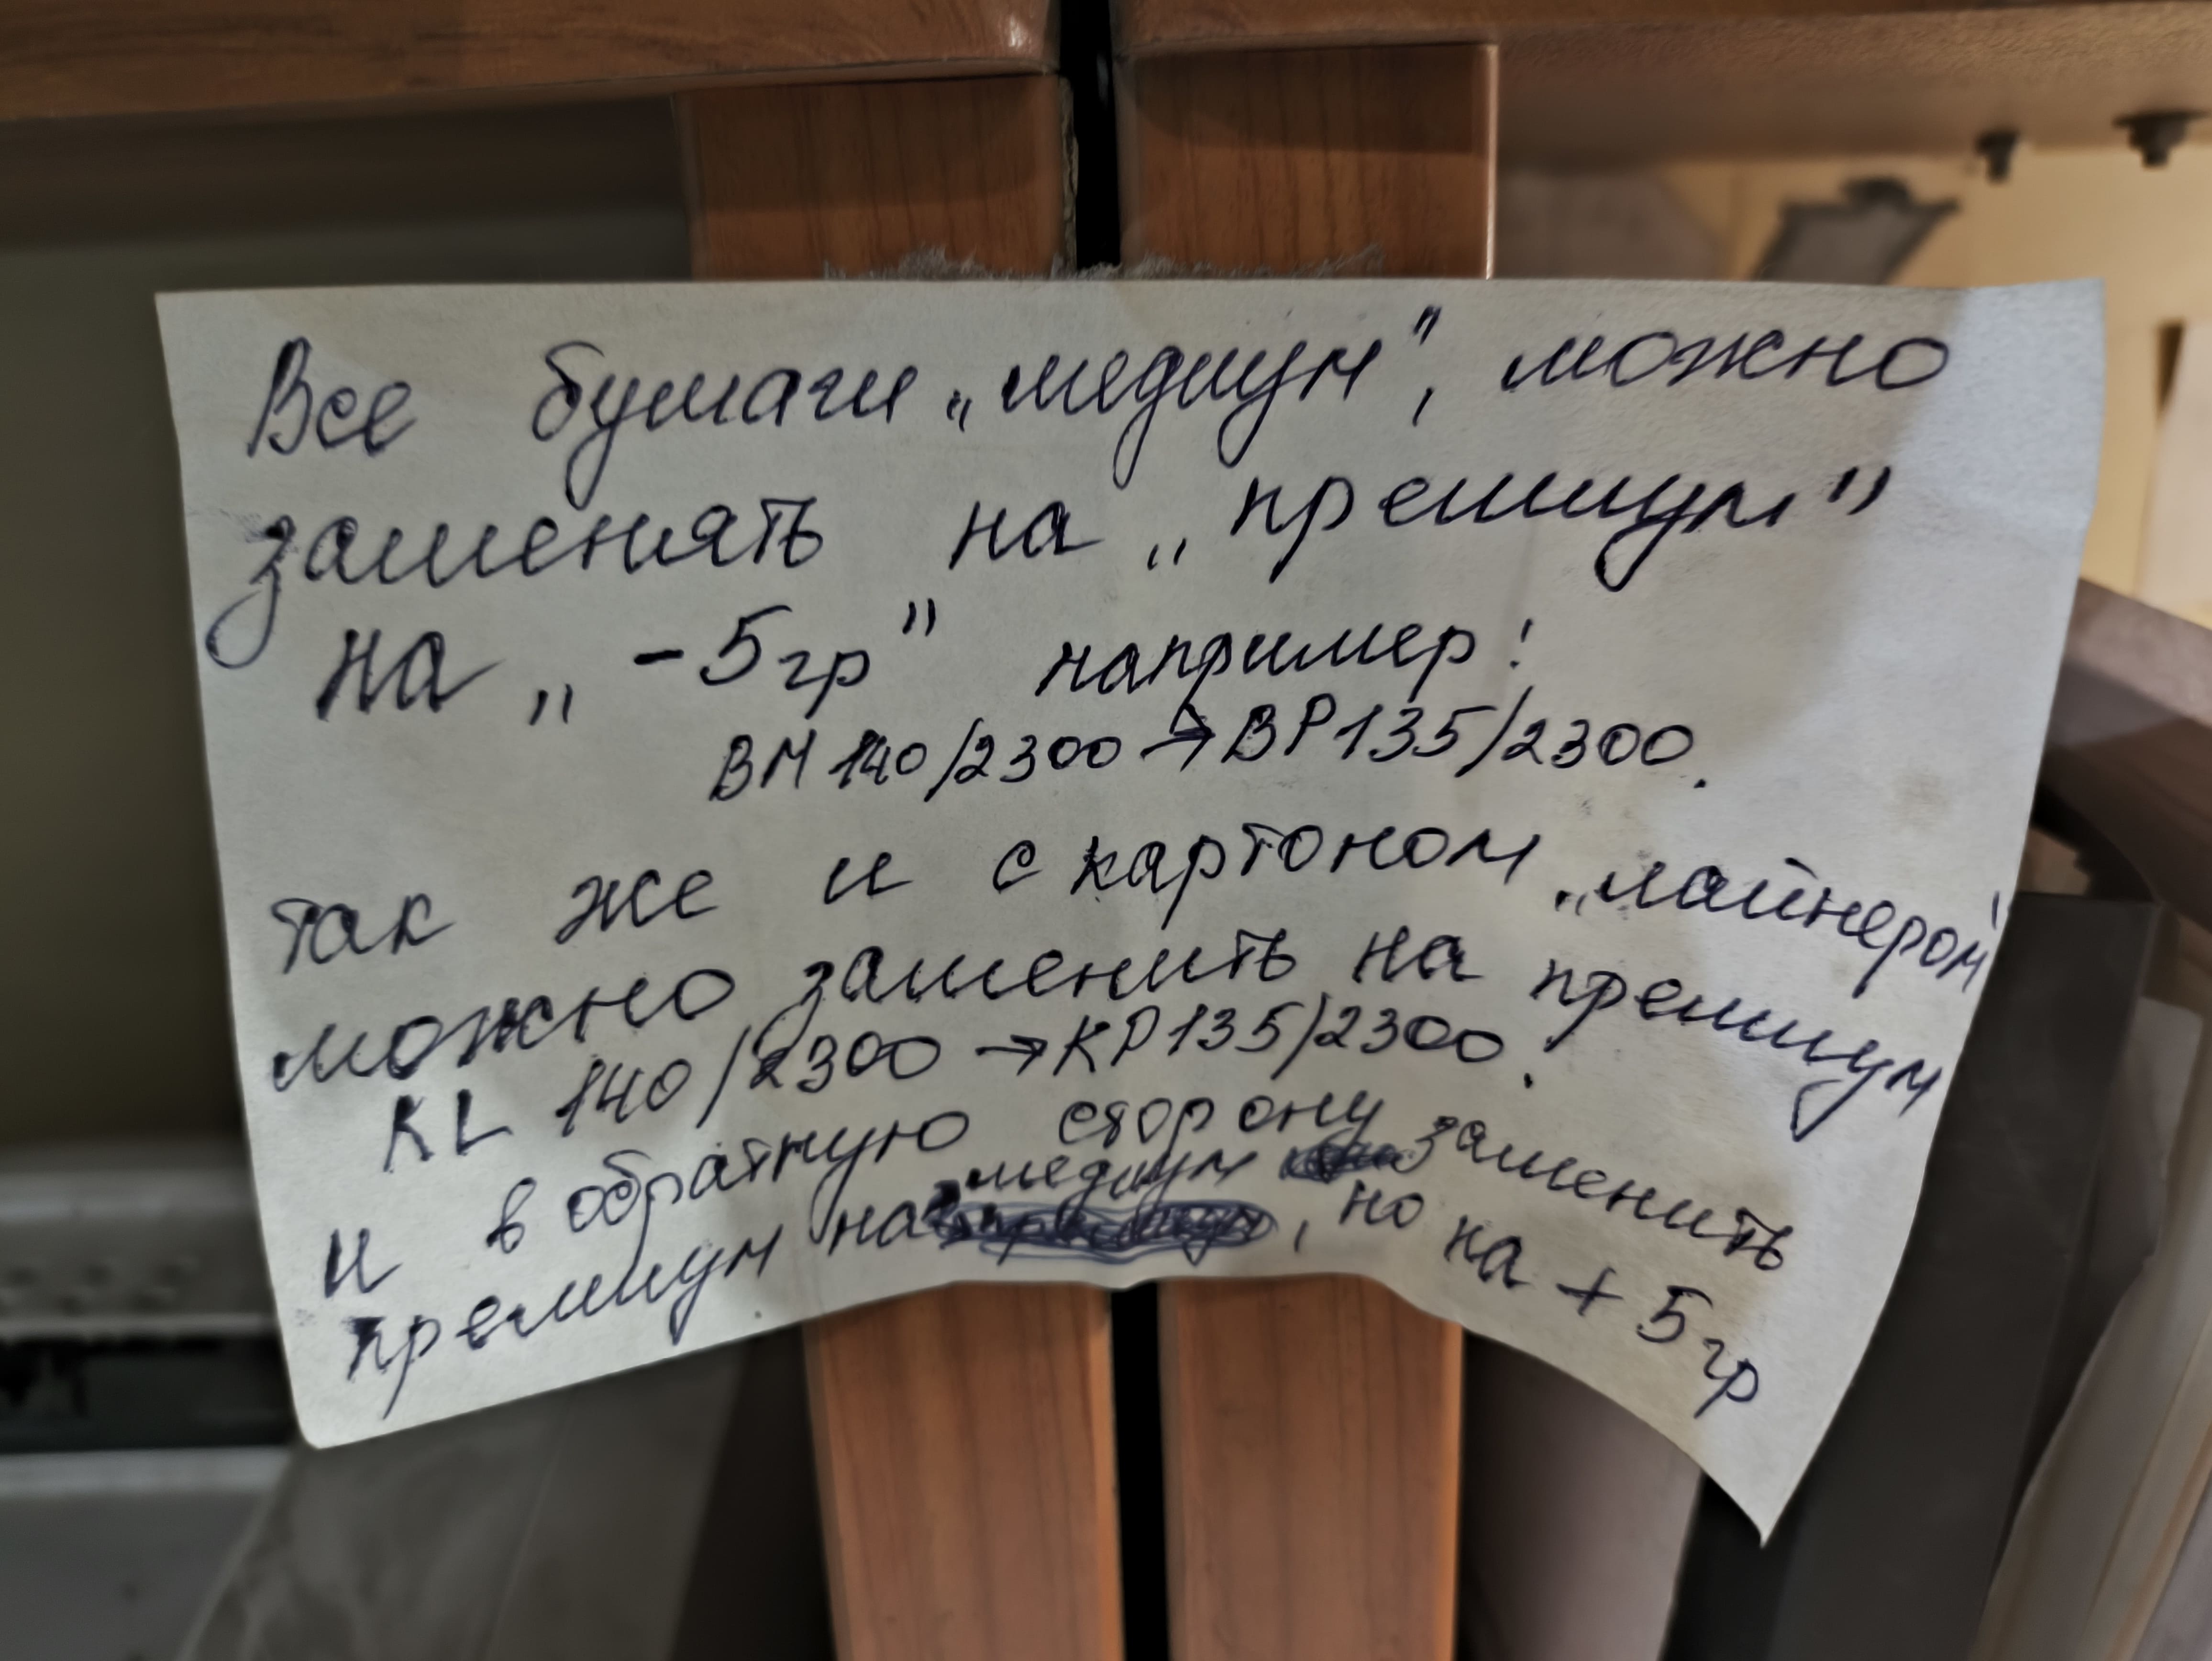 Все бумаги „медиум", можно
заменять на „премиум"
на „-5гр" например:
ВМ 140/2300 → ВР135/2300.
так же и с картоном „лайнером"
можно заменить на премиум
KL 140/2300 → КР135/2300.
и в обратную сторону заменить
премиум на медиум, но на +5гр